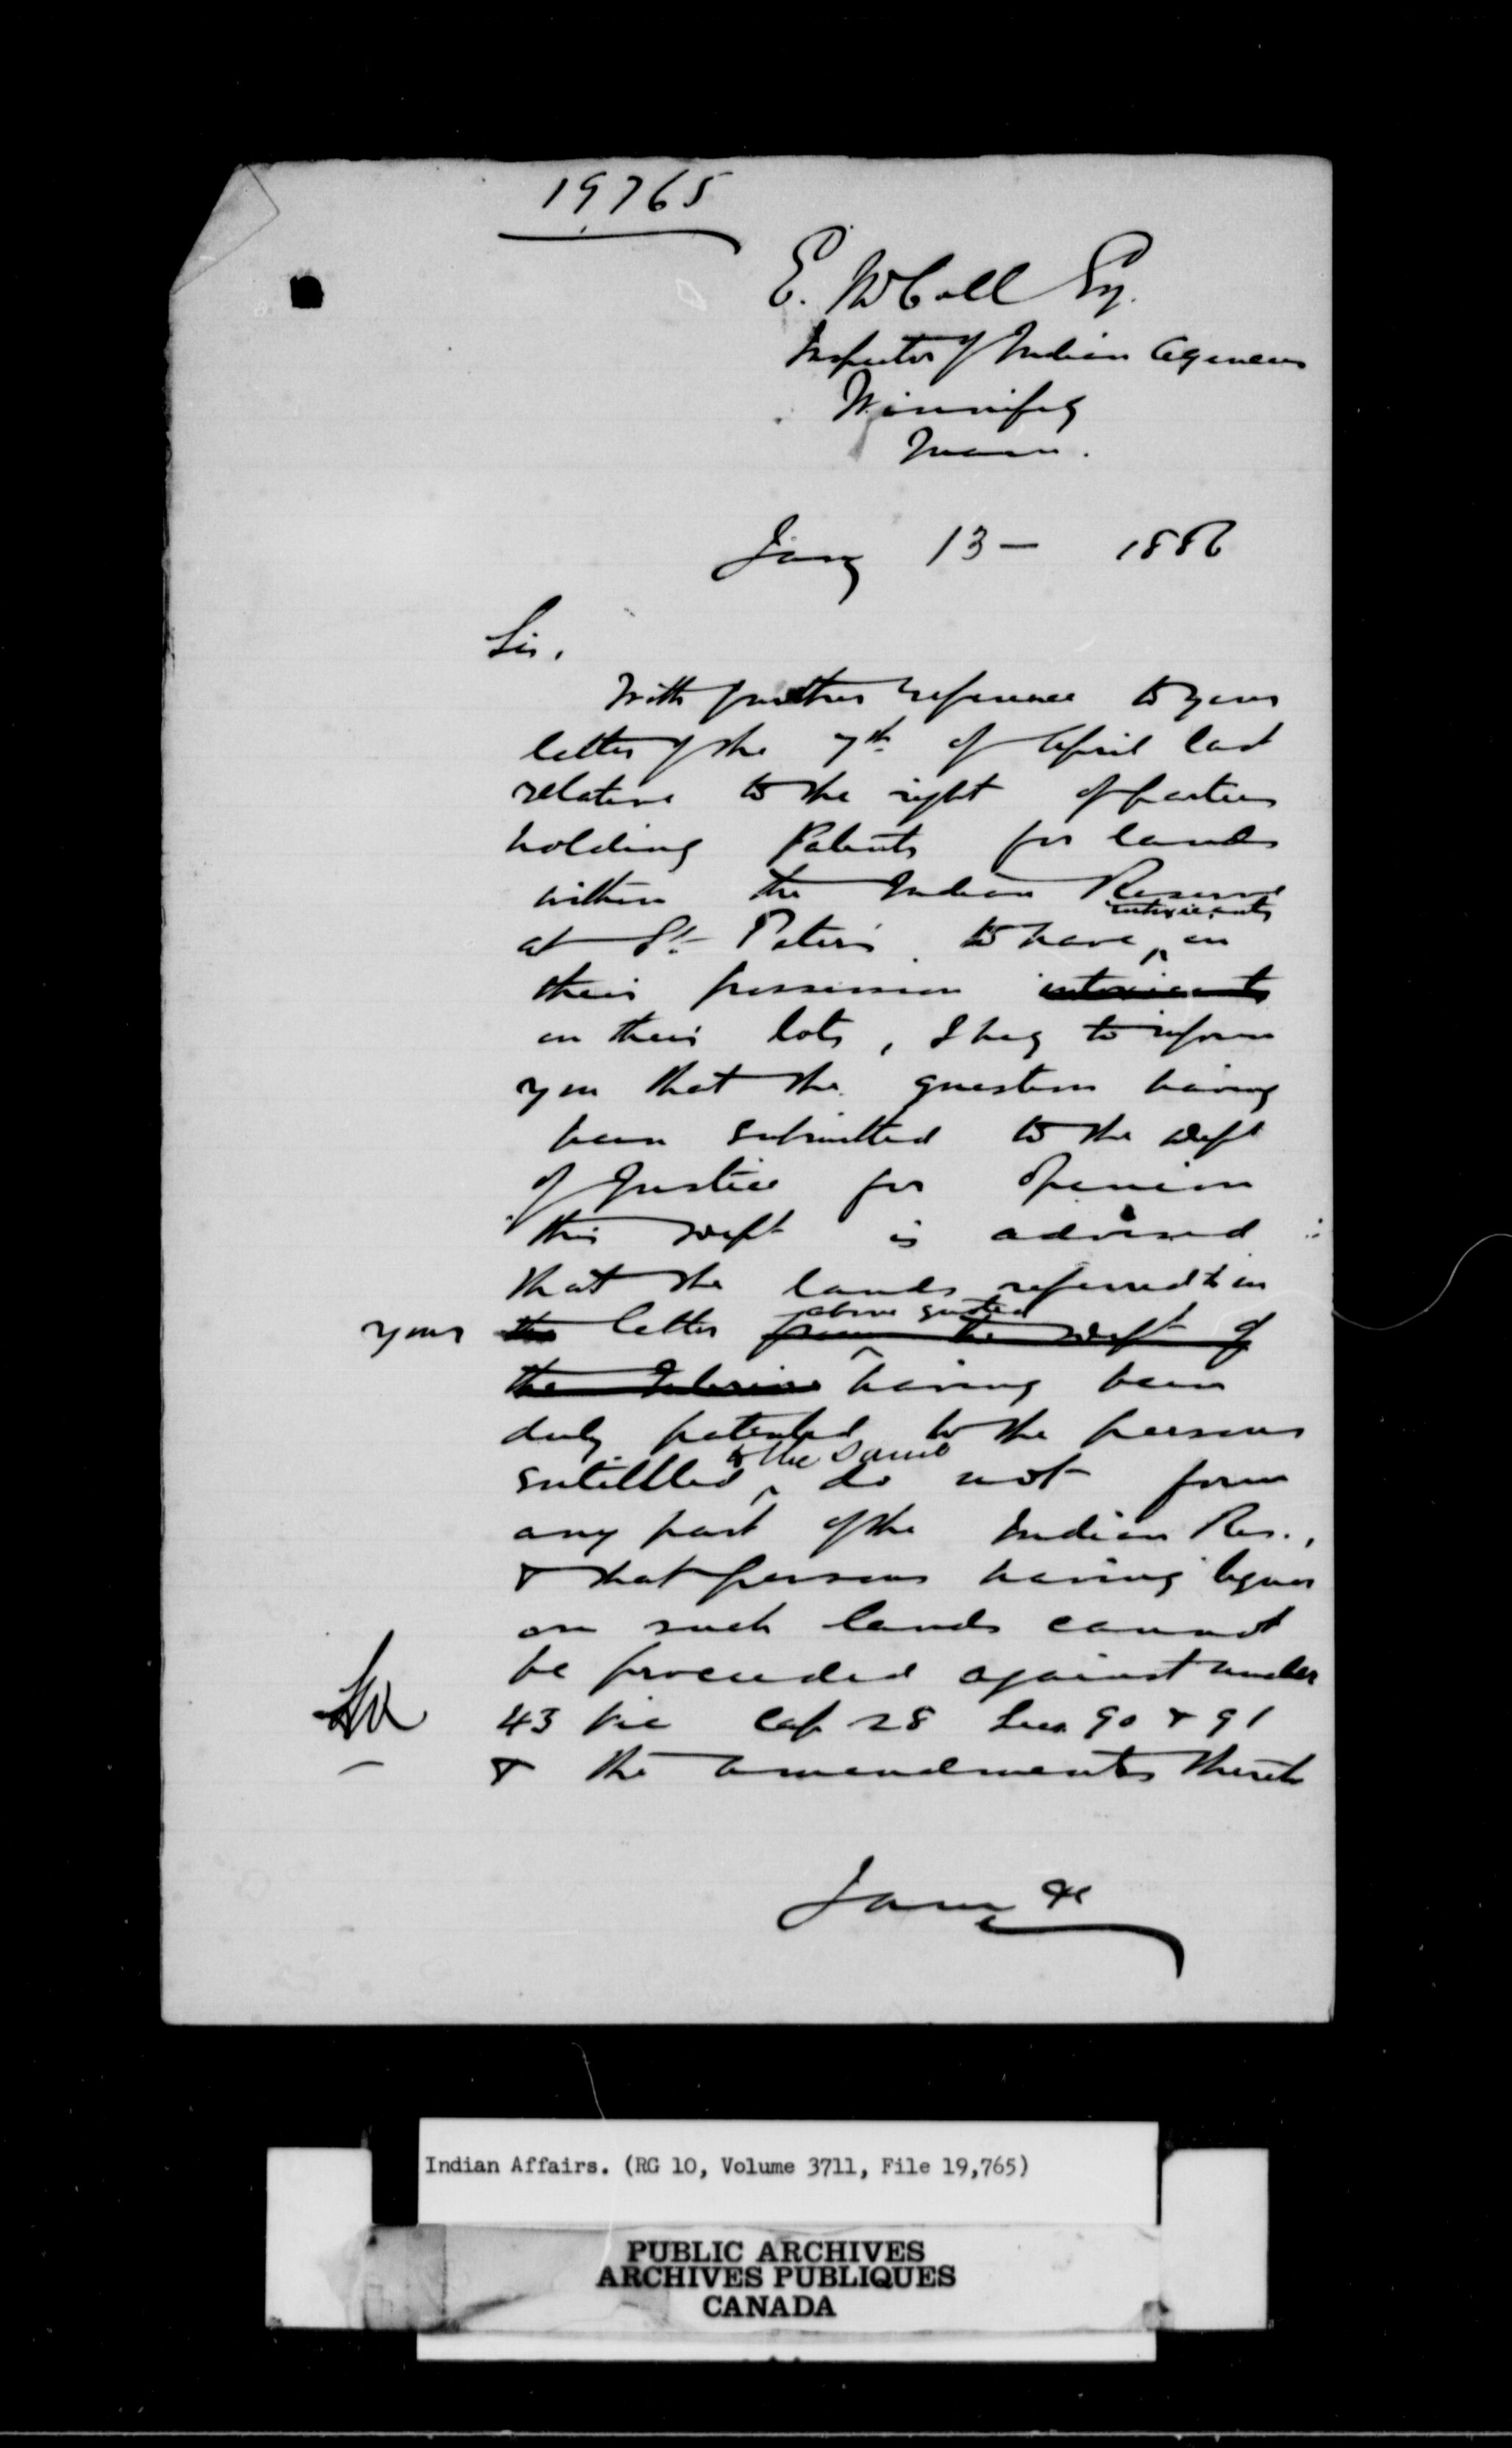 19765
E. McColl Esq.
Inspector of Indian Agencies
Winnipeg
Man.
Jany 13 — 1886
Sir,
With further reference to your
letter of the 7th of April last
relative to the right of parties
holding Patents for lands
within the Indian Reserve
intoxicants
at St. Peter's to have ^ in
their possession intoxicants
on their lots, I beg to inform
you that the question having
been submitted to the Dept
of Justice for opinion
this Dept is advised
that the lands referred to in
above quoted
your the letter from the Dept of
the Interior ^ having been
duly patented to the persons
to the same
entitled ^ do not form
any part of the Indian Res.,
& that persons having liquor
on such lands cannot
be proceeded against under
43 Vic Cap 28 Secs 90 & 91
& the amendments thereto
Indian Affairs. (RG 10, Volume 3711, File 19,765)
PUBLIC ARCHIVES
ARCHIVES PUBLIQUES
CANADA